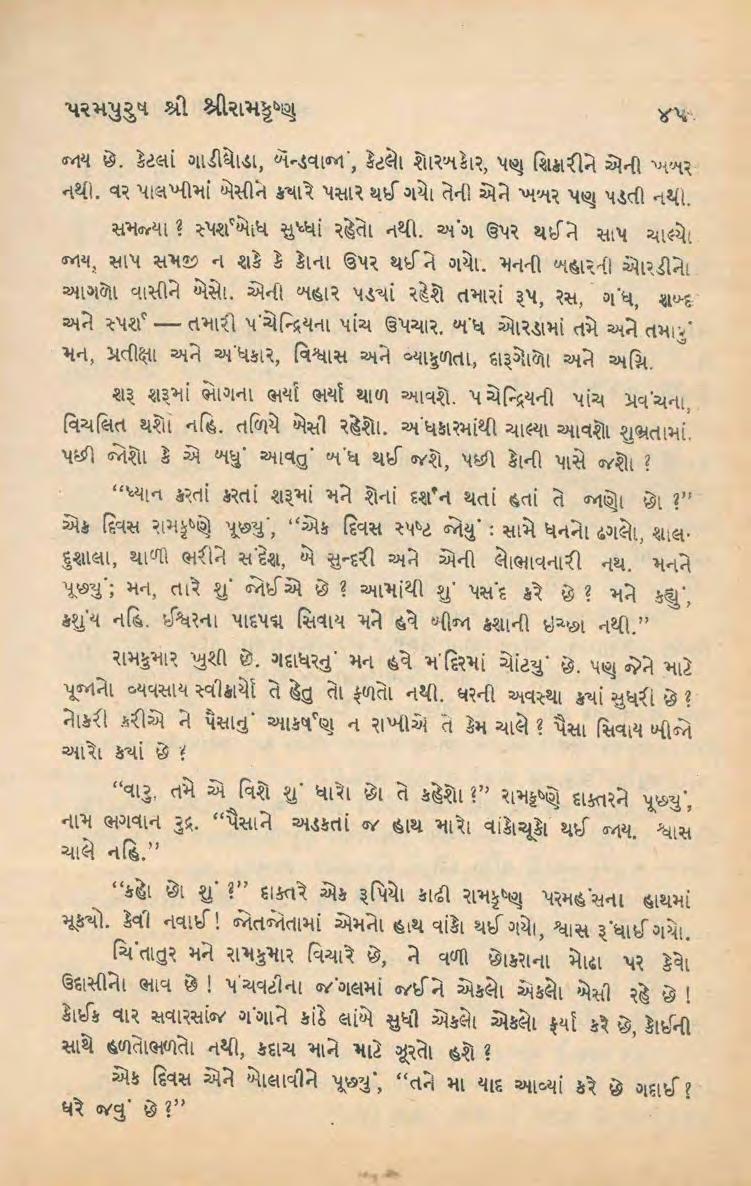 પરમપુરુષ શ્રી શ્રીરામકૃષ્ણ ૪૫
જાય છે. કેટલાં ગાડીઘોડા, બૅન્ડવાજાં, કેટલો શોરબકોર, પણ શિકારીને એની ખબર
નથી. વર પાલખીમાં બેસીને ક્યારે પસાર થઈ ગયો તેની એને ખબર પણ પડતી નથી.
સમજ્યા ? સ્પર્શબોધ સુધ્ધાં રહેતો નથી. અંગ ઉપર થઈને સાપ ચાલ્યો
જાય, સાપ સમજી ન શકે કે કોના ઉપર થઈને ગયો. મનની બહારની ઓરડીનો
આગળો વાસીને બેસો. એની બહાર પડ્યાં રહેશે તમારાં રૂપ, રસ, ગંધ, શબ્દ
અને સ્પર્શ — તમારી પંચેન્દ્રિયના પાંચ ઉપચાર. બંધ ઓરડામાં તમે અને તમારું
મન, પ્રતીક્ષા અને અંધકાર, વિશ્વાસ અને વ્યાકુળતા, દારૂગોળો અને અગ્નિ.
શરૂ શરૂમાં ભોગના ભર્યા ભર્યા થાળ આવશે. પંચેન્દ્રિયની પાંચ પ્રવંચના,
વિચલિત થશો નહિ. તળિયે બેસી રહેશો. અંધકારમાંથી ચાલ્યા આવશો શુભ્રતામાં.
પછી જોશો કે એ બધું આવતું બંધ થઈ જશે, પછી કોની પાસે જશો ?
“ધ્યાન કરતાં કરતાં શરૂમાં મને શેનાં દર્શન થતાં હતાં તે જાણો છો ?”
એક દિવસ રામકૃષ્ણે પૂછ્યું, “એક દિવસ સ્પષ્ટ જોયું : સામે ધનનો ઢગલો, શાલ-
દુશાલા, થાળી ભરીને સંદેશ, બે સુન્દરી અને એની લોભાવનારી નથ. મનને
પૂછ્યું; મન, તારે શું જોઈએ છે ? આમાંથી શું પસંદ કરે છે ? મને કહ્યું,
કશુંય નહિ. ઈશ્વરના પાદપદ્મ સિવાય મને હવે બીજા કશાની ઇચ્છા નથી.”
રામકુમાર ખુશી છે. ગદાધરનું મન હવે મંદિરમાં ચોંટયું છે. પણ જેને માટે
પૂજાનો વ્યવસાય સ્વીકાર્યો તે હેતુ તો ફળતો નથી. ઘરની અવસ્થા ક્યાં સુધરી છે ?
નોકરી કરીએ ને પૈસાનું આકર્ષણ ન રાખીએ તે કેમ ચાલે ? પૈસા સિવાય બીજો
આરો ક્યાં છે ?
“વારુ, તમે એ વિશે શું ધારો છો તે કહેશો ?” રામકૃષ્ણે દાક્તરને પૂછ્યું,
નામ ભગવાન રુદ્ર. “પૈસાને અડકતાં જ હાથ મારો વાંકોચૂકો થઈ જાય. શ્વાસ
ચાલે નહિ.”
“કહો છો શું ?” દાક્તરે એક રૂપિયો કાઢી રામકૃષ્ણ પરમહંસના હાથમાં
મૂક્યો. કેવી નવાઈ ! જોતજોતામાં એમનો હાથ વાંકો થઈ ગયો, શ્વાસ રૂંધાઈ ગયો.
ચિંતાતુર મને રામકુમાર વિચારે છે, ને વળી છોકરાના મોઢા પર કેવો
ઉદાસીનો ભાવ છે ! પંચવટીના જંગલમાં જઈને એકલો એકલો બેસી રહે છે !
કોઈક વાર સવારસાંજ ગંગાને કાંઠે લાંબે સુધી એકલો એકલો ફર્યા કરે છે, કોઈની
સાથે હળતોભળતો નથી, કદાચ માને માટે ઝૂરતો હશે ?
એક દિવસ એને બોલાવીને પૂછ્યું, “તને મા યાદ આવ્યાં કરે છે ગદાઈ ?
ઘરે જવું છે ?”